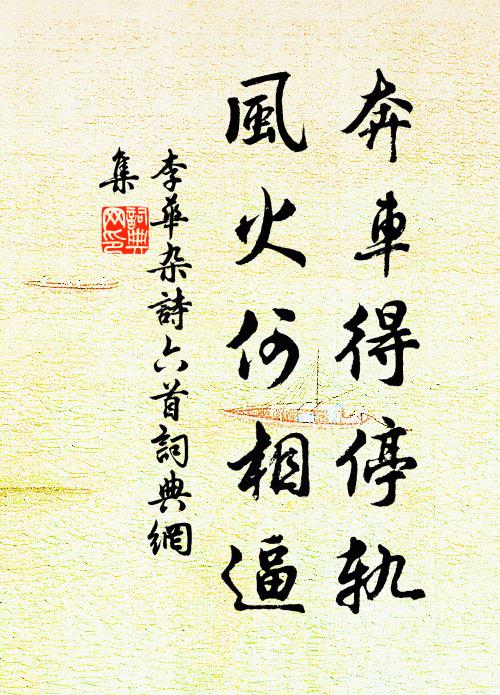 奔車得停軌
風火何相逼
李華杂詩六首詞典網
集
詞典网印